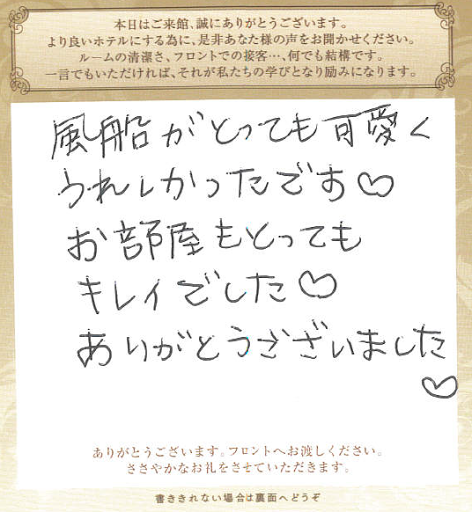 本日はご来館、誠にありがとうございます。
より良いホテルにする為に、是非あなた様の声をお聞かせください。
ルームの清潔さ、フロントでの接客…、何でも結構です。
一言でもいただければ、それが私たちの学びとなり励みになります。
風船がとっても可愛く
うれしかったです♡
お部屋もとっても
キレイでした♡
ありがとうございました
♡
ありがとうございます。フロントへお渡しください。
ささやかなお礼をさせていただきます。
書ききれない場合は裏面へどうぞ